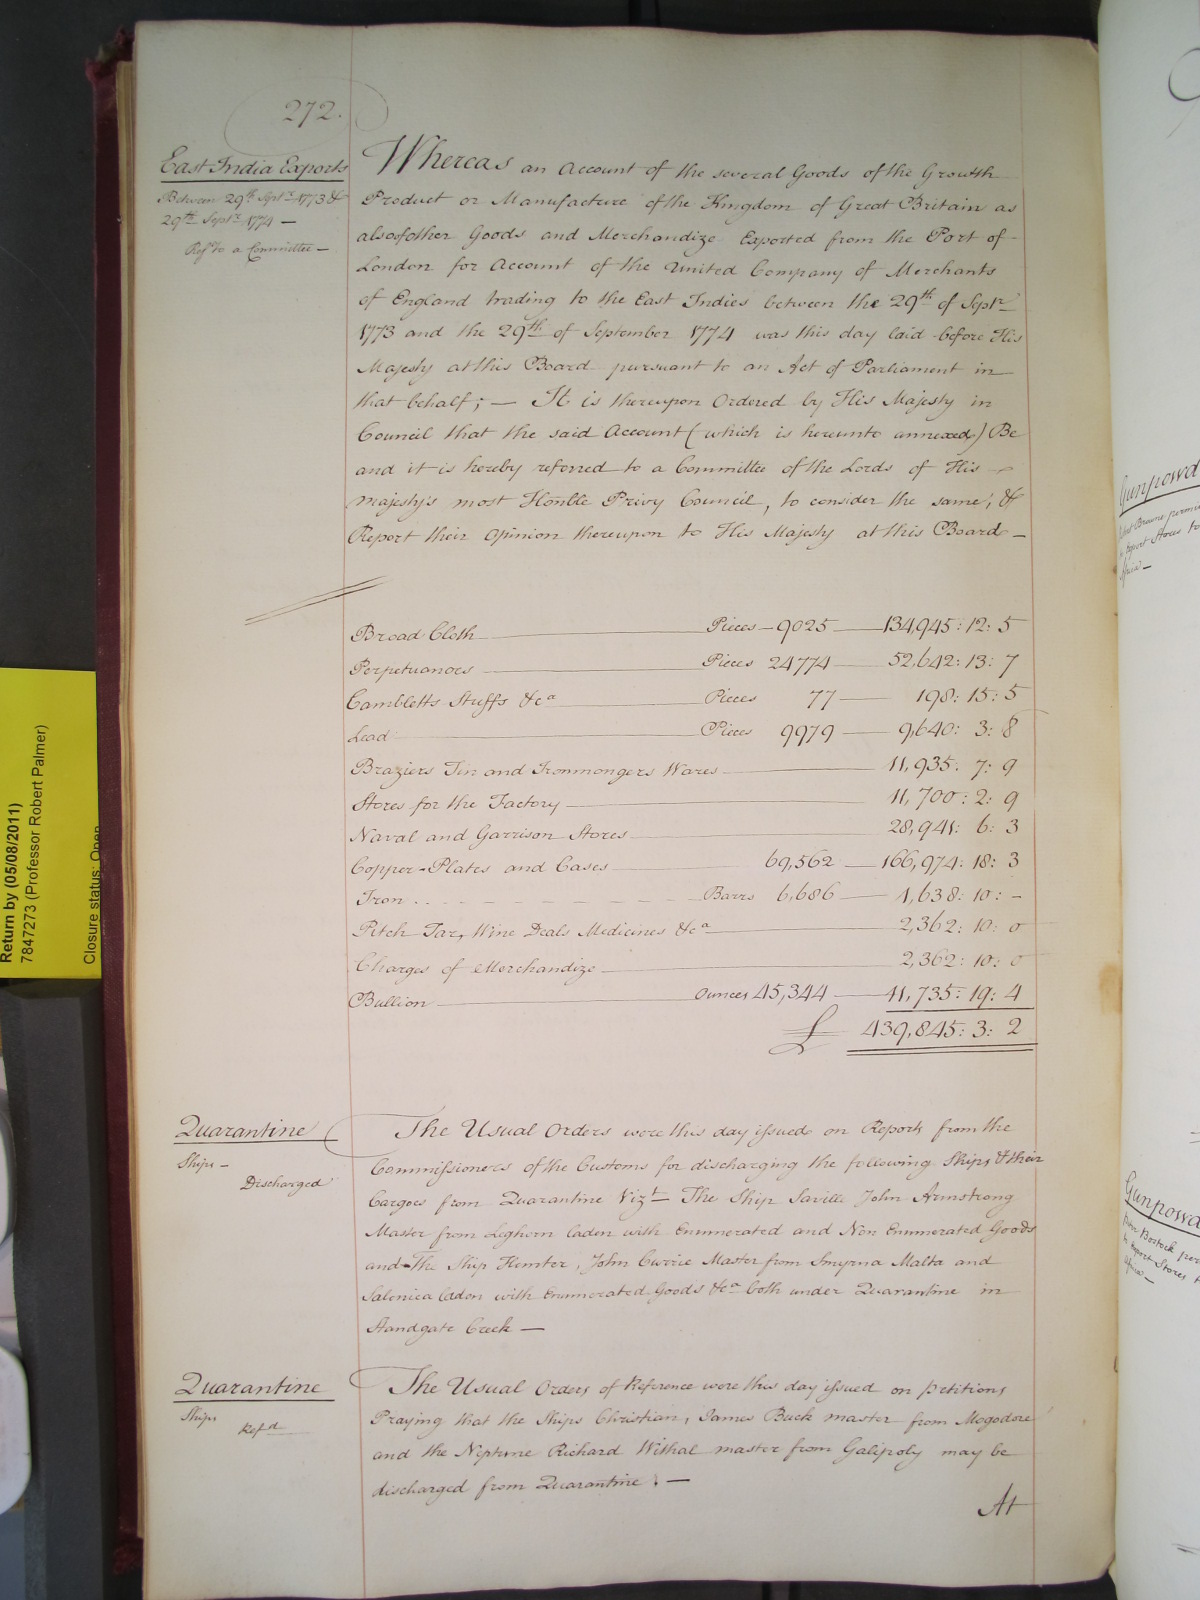 272.
East India Exports
Between 29th Septr 1773 &
29th Septr 1774 —
Refd to a Committee —
Whereas an Account of the several Goods of the Growth
Product or Manufacture of the Kingdom of Great Britain as
also of other Goods and Merchandize Exported from the Port of
London for Account of the United Company of Merchants
of England trading to the East Indies between the 29th of Septr
1773 and the 29th of September 1774 was this day laid before His
Majesty at this Board pursuant to an Act of Parliament in
that behalf; — It is thereupon Ordered by His Majesty in
Council that the said Account (which is hereunto annexed) Be
and it is hereby referred to a Committee of the Lords of His
Majesty's most Honble Privy Council, to consider the same, &
Report their Opinion thereupon to His Majesty at this Board —
Broad Cloth — Pieces — 9025 — 134,945: 12: 5
Perpetuanoes — Pieces 24774 — 52,642: 13: 7
Cambletts Stuffs &ca — Pieces 77 — 198: 15: 5
Lead — Pieces 9979 — 9,640: 3: 8
Braziers Tin and Ironmongers Wares — 11,935: 7: 9
Stores for the Factory — 11,700: 2: 9
Naval and Garrison Stores — 28,941: 6: 3
Copper-Plates and Cases — 69,562 — 166,974: 18: 3
Iron — Barrs 6,686 — 1,638: 10: -
Pitch Tar, Wine Deals Medicines &ca — 2,362: 10: 0
Charges of Merchandize — 2,362: 10: 0
Bullion — Ounces 45,344 — 11,735: 19: 4
£ 439,845: 3: 2
Quarantine
Ships —
Discharged
The Usual Orders were this day issued on Reports from the
Commissioners of the Customs for discharging the following Ships & their
Cargoes from Quarantine Vizt — The Ship Saville John Armstrong
Master from Leghorn laden with Enumerated and Non Enumerated Goods
and The Ship Hunter, John Currie Master from Smyrna Malta and
Salonica laden with Enumerated Goods &ca both under Quarantine in
Standgate Creek —
Quarantine
Ships
Refd
The Usual Orders of Reference were this day issued on petitions
Praying that the Ships Christian, James Buck master from Mogodore
and the Neptune Richard Withal master from Galipoly may be
discharged from Quarantine. —
At
Return by (05/08/2011)
7847273 (Professor Robert Palmer)
Closure status: Open
Gunpowd
Gunpowd